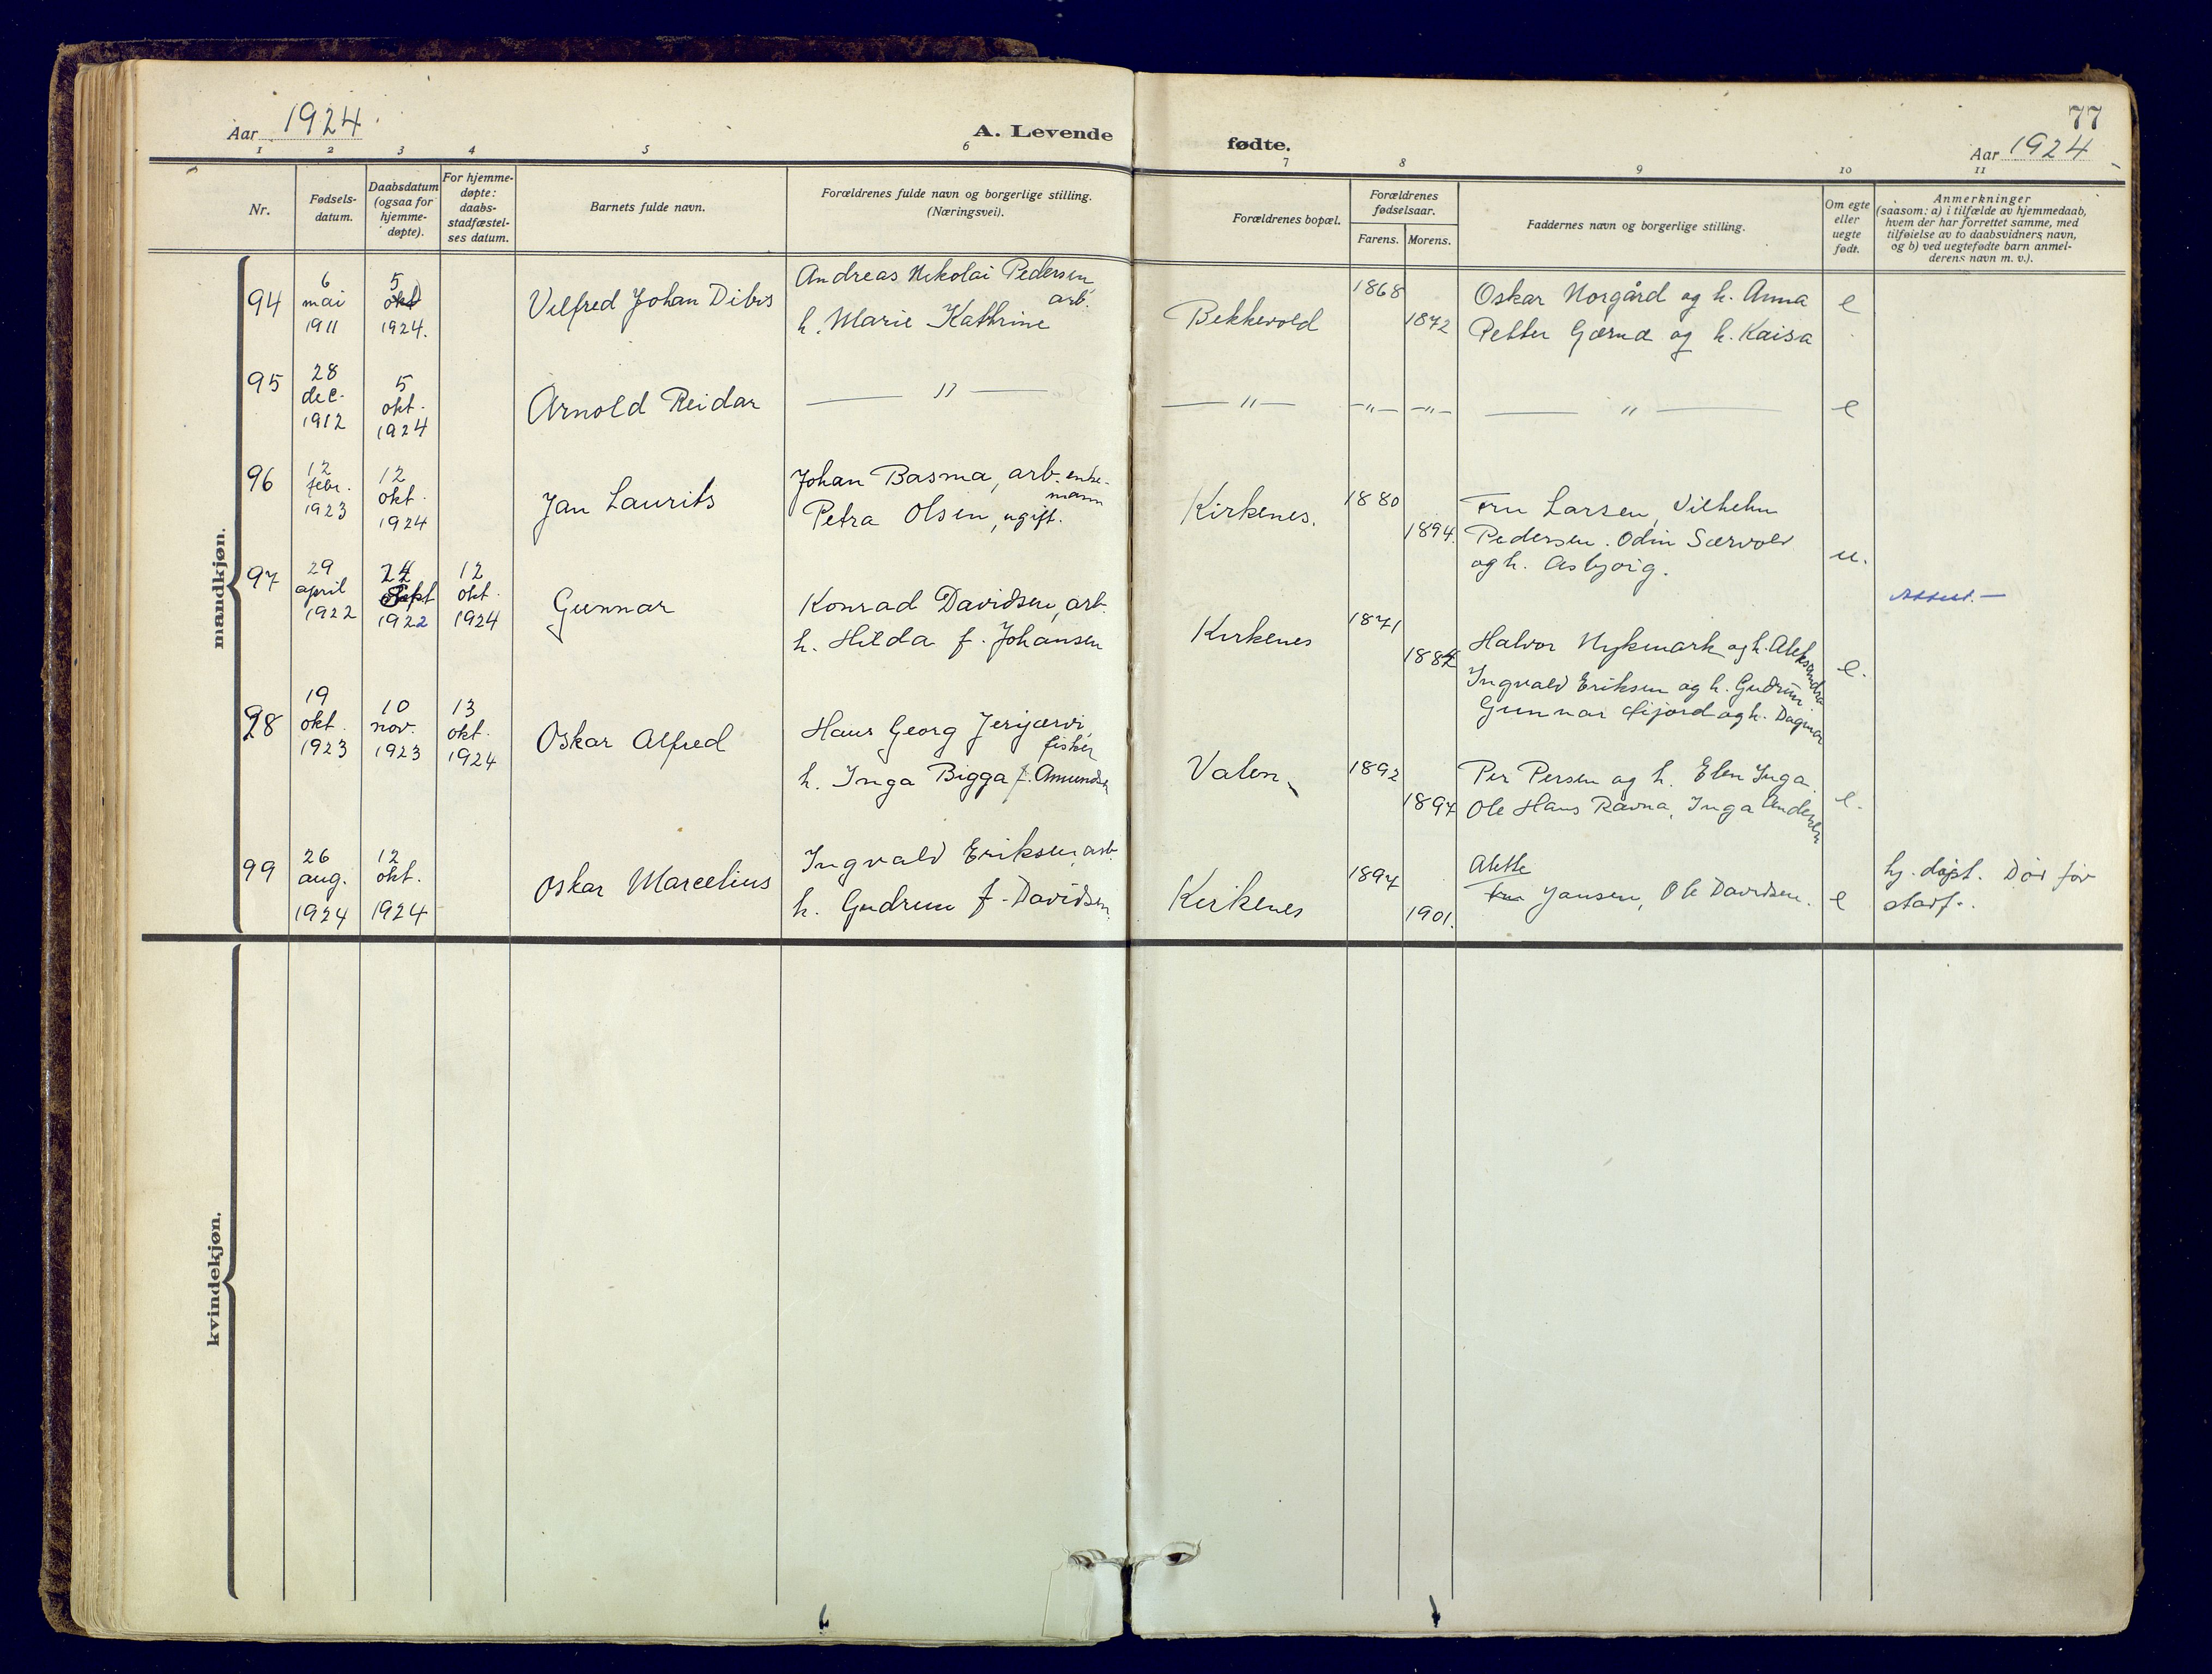 Aar 1924.
A. Levende
fødte.
77
Aar 1924
1 2 3 4 5 6 7 8 9 10 11
Nr.
Fødsels-
datum.
Daabsdatum
(ogsaa for
hjemme-
døpte).
For hjemme-
døpte:
daabs-
stadfæstel-
ses datum.
Barnets fulde navn.
Forældrenes fulde navn og borgerlige stilling.
(Næringsvei).
Forældrenes bopæl.
Forældrenes
fødselsaar.
Farens. Morens.
Faddernes navn og borgerlige stilling.
Om egte
eller
uegte
født.
Anmerkninger
(saasom: a) i tilfælde av hjemmedaab,
hvem der har forrettet samme, med
tilføielse av to daabsvidners navn,
og b) ved uegtefødte barn anmel-
derens navn m. v.).
mandkjøn.
94
6
mai
1911
5
okt
1924.
Vilfred Johan Dibos
Andreas Nikolai Pedersen,
arb.
h. Marie Kathrine
Bekkevold
1868
1872
Oskar Norgård og h. Anna
Petter Gærnæ og h. Kaisa
e
95
28
dec.
1912
5
okt.
1924
Arnold Reidar
— " —
— " —
— " —
— " —
— " —
e
96
12
febr.
1923
12
okt.
1924
Jan Laurits
Johan Basma, arb. enke-
mann
Petra Olsen, ugift.
Kirkenes.
1880
1894.
Fru Larsen, Vilhelm
Pedersen. Odin Særvold
og h. Asbjørg.
u.
97
29
april
1922
24
sept
1922
12
okt.
1924
Gunnar
Konrad Davidsen, arb.
h. Hilda f. Johansen
Kirkenes
1871
1884
Halvor Nykmark og h. Aleksandra
Ingvald Eriksen og h. Gudrun.
Gunnar og h. Dagmar
e.
Attest. —
98
19
okt.
1923
10
nov.
1923
13
okt.
1924
Oskar Alfred
Hans Georg Jerijærvi,
fisker
h. Inga Bigga f. Amundsen
Valen
1892
1897
Per Persen og h. Elen Inga.
Ole Hans Ravna, Inga Andersen
e.
99
26
aug.
1924
12
okt.
1924
Oskar Marcelius
Ingvald Eriksen, arb.
h. Gudrun f. Davidsen.
Kirkenes
1897
1901.
Alette
fru Jansen, Ole Davidsen.
e
hj. døpt. Død før
stadf.
kvindekjøn.